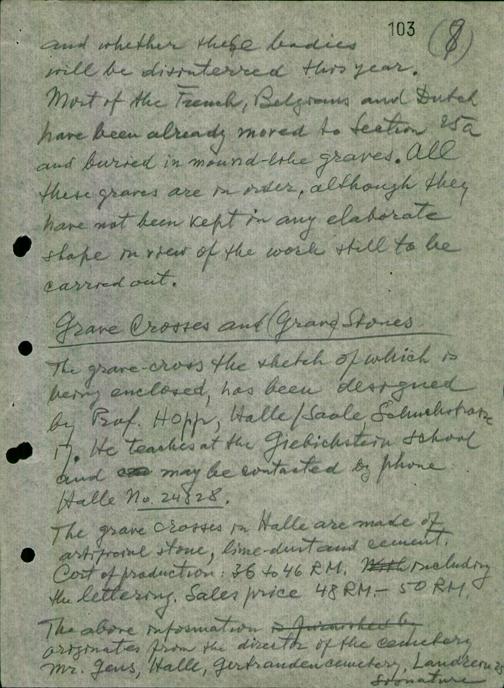 103 (8)
and whether these bodies
will be disinterred this year.
Most of the French, Belgians and Dutch
have been already moved to Section 25a
and buried in mound-like graves. All
these graves are in order, although they
have not been kept in any elaborate
shape in view of the work still to be
carried out.
Grave Crosses and (Grave) Stones
The grave-cross the sketch of which is
being enclosed, has been designed
by Prof. Hopp, Halle/Saale,
17. He teaches at the Giebichstein school
and may be contacted by phone
Halle No. 24828.
The grave crosses in Halle are made of
artificial stone, lime-dust and cement.
Cost of production: 36 to 46 RM. including
the lettering. Sales price 48 RM - 50 RM.
The above information is furnished by
originates from the director of the cemetery
Mr. Jens, Halle, Gertraudencemetery,
Signature